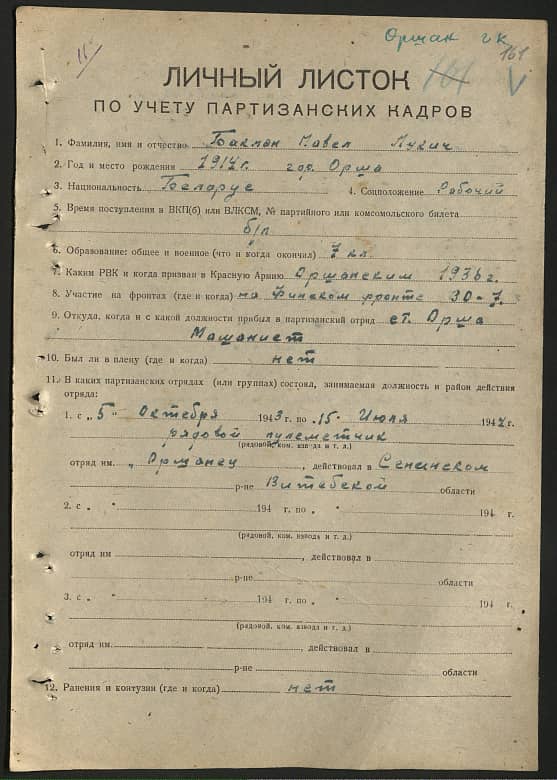 Оршан г к
11
161
ЛИЧНЫЙ ЛИСТОК
ПО УЧЕТУ ПАРТИЗАНСКИХ КАДРОВ
1. Фамилия, имя и отчество Бакман Павел Лукич
2. Год и место рождения 1917г. гор. Орша
3. Национальность Беларус 4. Соцположение Рабочий
5. Время поступления в ВКП(б) или ВЛКСМ, № партийного или комсомольского билета
б/п
6. Образование: общее и военное (что и когда окончил) 7 кл.
7. Каким РВК и когда призван в Красную Армию Оршанским 1936г.
8. Участие на фронтах (где и когда) на Финском фронте
9. Откуда, когда и с какой должности прибыл в партизанский отряд ст. Орша
Машинист
10. Был ли в плену (где и когда) нет
11. В каких партизанских отрядах (или группах) состоял, занимаемая должность и район действия
отряда:
1. с „5" Октября 1943 г. по „15" Июля 1944 г.
рядовой пулеметчик
(рядовой, ком. взвода и т. д.)
отряд им. „Оршанец , действовал в Сенненском
р-не Витебской области
2. с „ " 194 г. по „ " 194 г.
(рядовой, ком. взвода и т. д.)
отряд им , действовал в
р-не области
3. с „ " 194 г. по „ " 194 г.
(рядовой, ком. взвода и т. д.)
отряд им. , действовал в
р-не области
12. Ранения и контузии (где и когда) нет